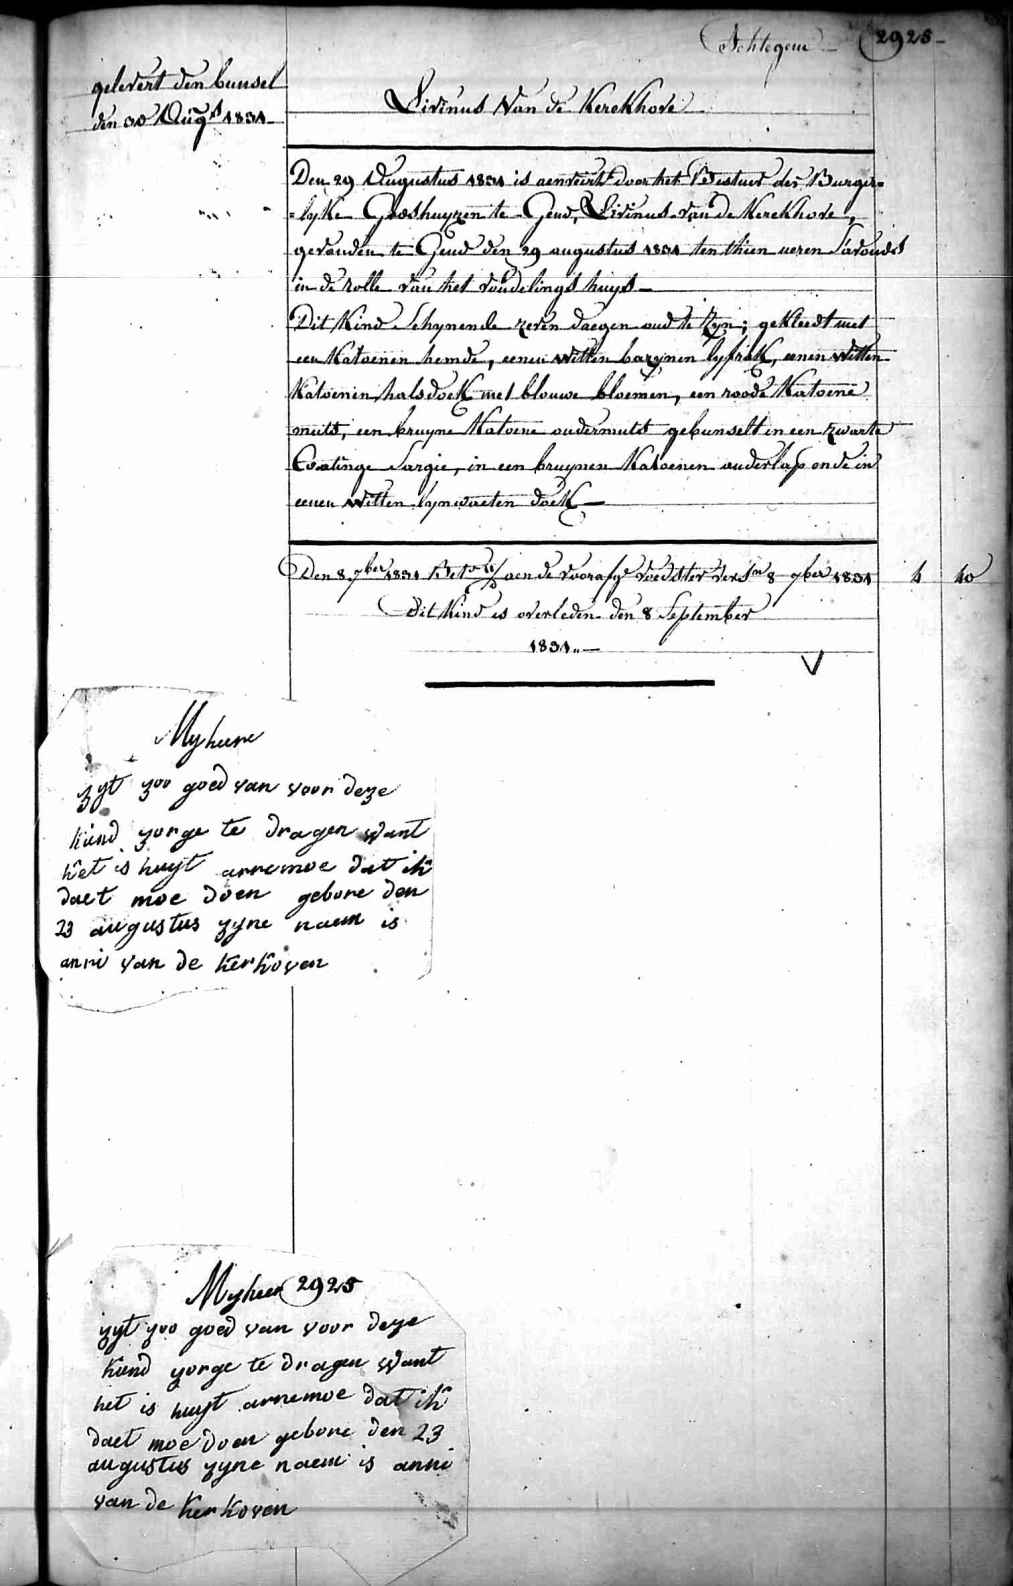 Achtegem 2925
gelevert den bunsel
den 30 Augst 1831
Livinus Van de Kerckhove
Den 29 Augustus 1831 is aenveirt door het Bestuer der Burger=
=lyke Godshuyzen te Gend, Livinus van de Kerckhove,
gevonden te Gend den 29 augustus 1831 ten thien ueren S'avonds
in de rolle van het vondelings huys
Dit Kind Schynende zeven daegen oud te Zyn; gekleedt met
een Katoenen hemde, eenen witten bazynen lyfrok, eenen witten
Katoenen halsdoek met blouwe bloemen, een roode Katoene
muts, een bruyne Katoene ondermuts gebunselt in een zwarte
Coatinge Sargie, in een bruynen Katoenen onderlap en de in
eenen witten lynwaeten doek
Den 8 7ber 1831 aen de voedster 8 7ber 1831 4 40
Dit Kind is overleden den 8 September
1831
Myheere
zyt zoo goed van voor deze
kind zorge te dragen want
het is huyt arremoe dat ik
daet moe doen gebore den
23 augustus zyne naem is
anni van de kerkoven
Myheer 2925
zyt zoo goed van voor deze
kind zorge te dragen want
het is huyt arremoe dat ik
daet moe doen gebore den 23
augustus zyne naem is anni
van de kerkoven